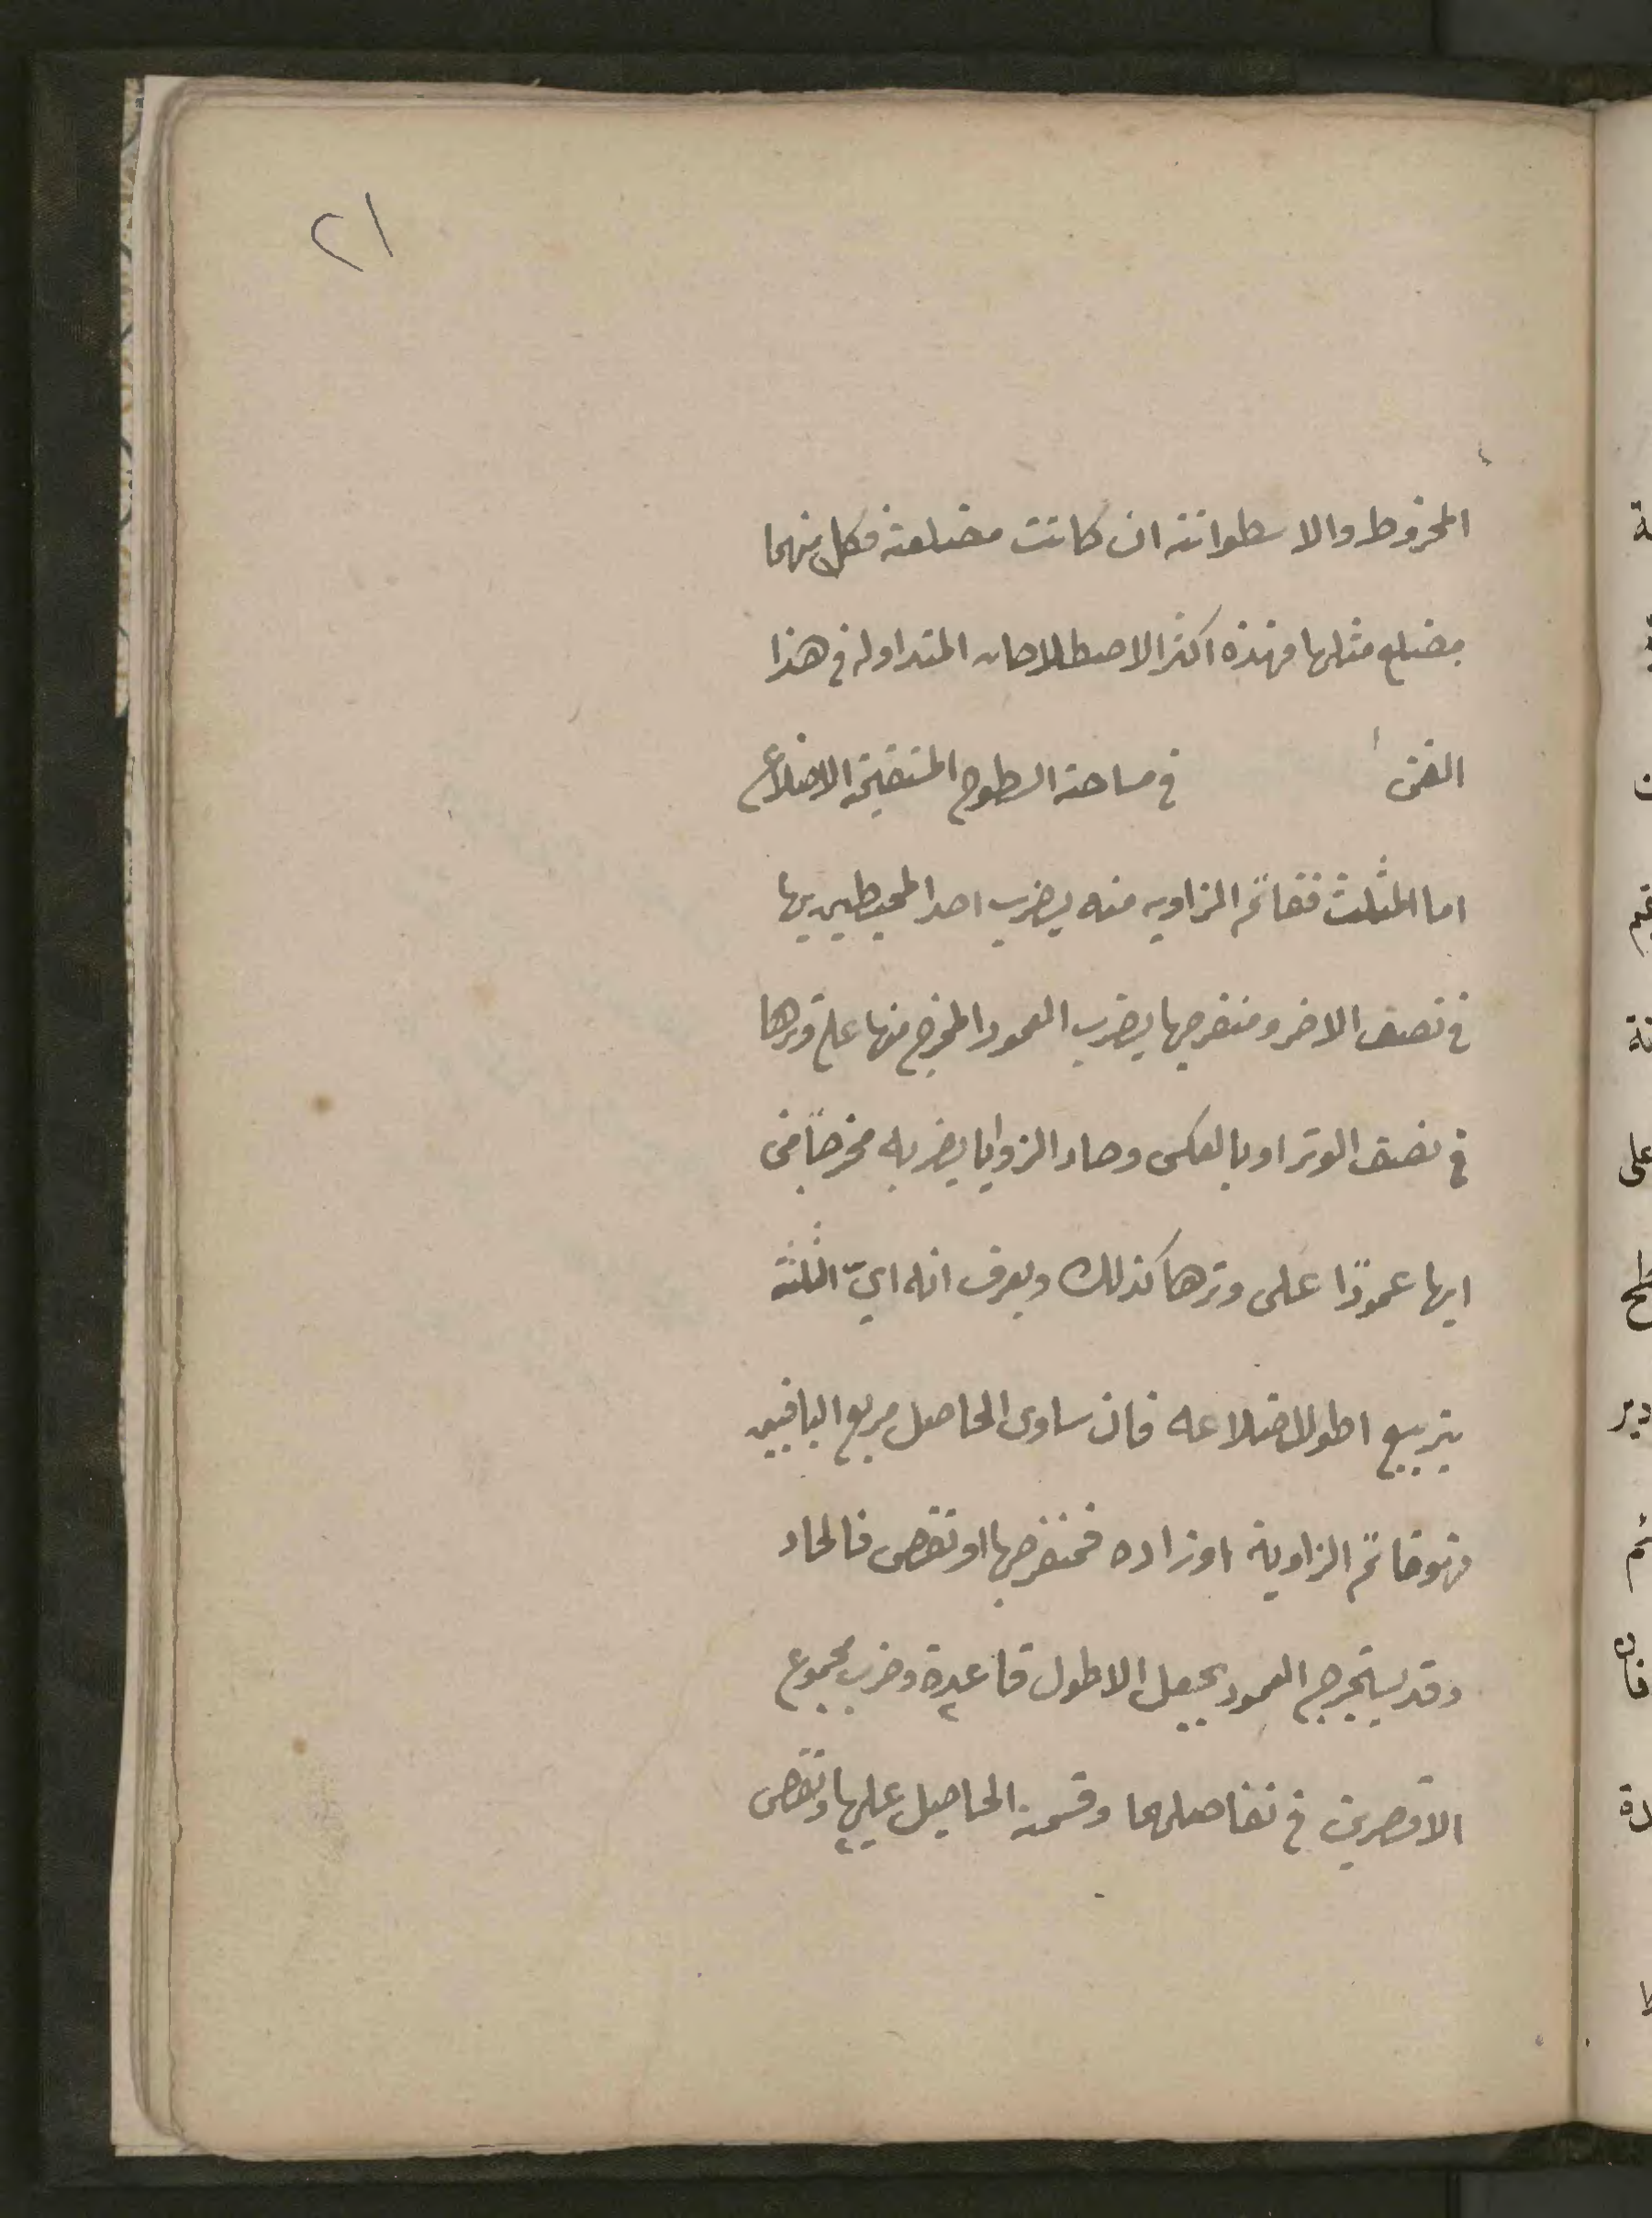 ٢١
المخروط والاسطوانة ان كانت مضلعة فكل منهما
مضلع مثلها فهذه اكثر الاصطلاحات المتداولة في هذا
الفن في مساحة السطوح المستقيمة الاضلاع
اما المثلث فقائم الزاويه منه يضرب احد المحيطين بها
في نصف الاخر ومنفرجها يضرب العمود المخرج منها على وترها
في نصف الوتر او بالعكس وحاد الزوايا يضربه مخرجًا من
ايها عمودًا على وترها كذلك ويعرف انه ايّ الثلثة
بتربيع اطول اضلاعه فان ساوى الحاصل مربع الباقيين
فهو قائم الزاوية اوزاده فمنفرجها او نقص فالحاد
وقد يستخرج العمود بجعل الاطول قاعدة وضرب مجموع
الاقصرين في تفاضلهما وقسمة الحاصل عليها ونقص